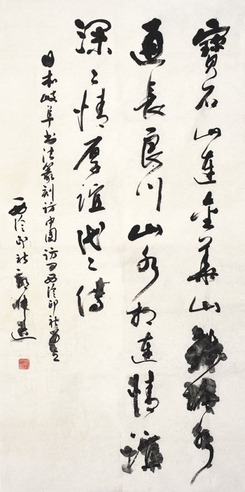 寶石山連金華山錢塘水
通長良川山水相連情誼
深々情厚誼代々傳
日本岐阜書法篆刻訪中團訪問西泠印社留念
西泠印社郭仲選